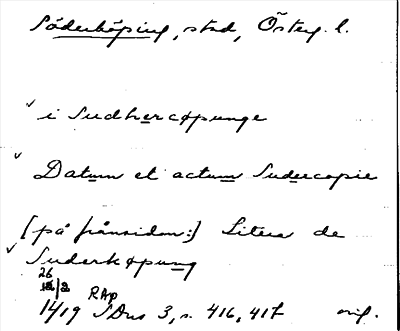 Söderköping, stad, Österg. l.
i Sudhercøpunge
Datum et actum Sudercopie
[på frånsidan:] Litera de
Suderkøpung
26/2
1419 RAp SDns 3, s. 416, 417 orig.